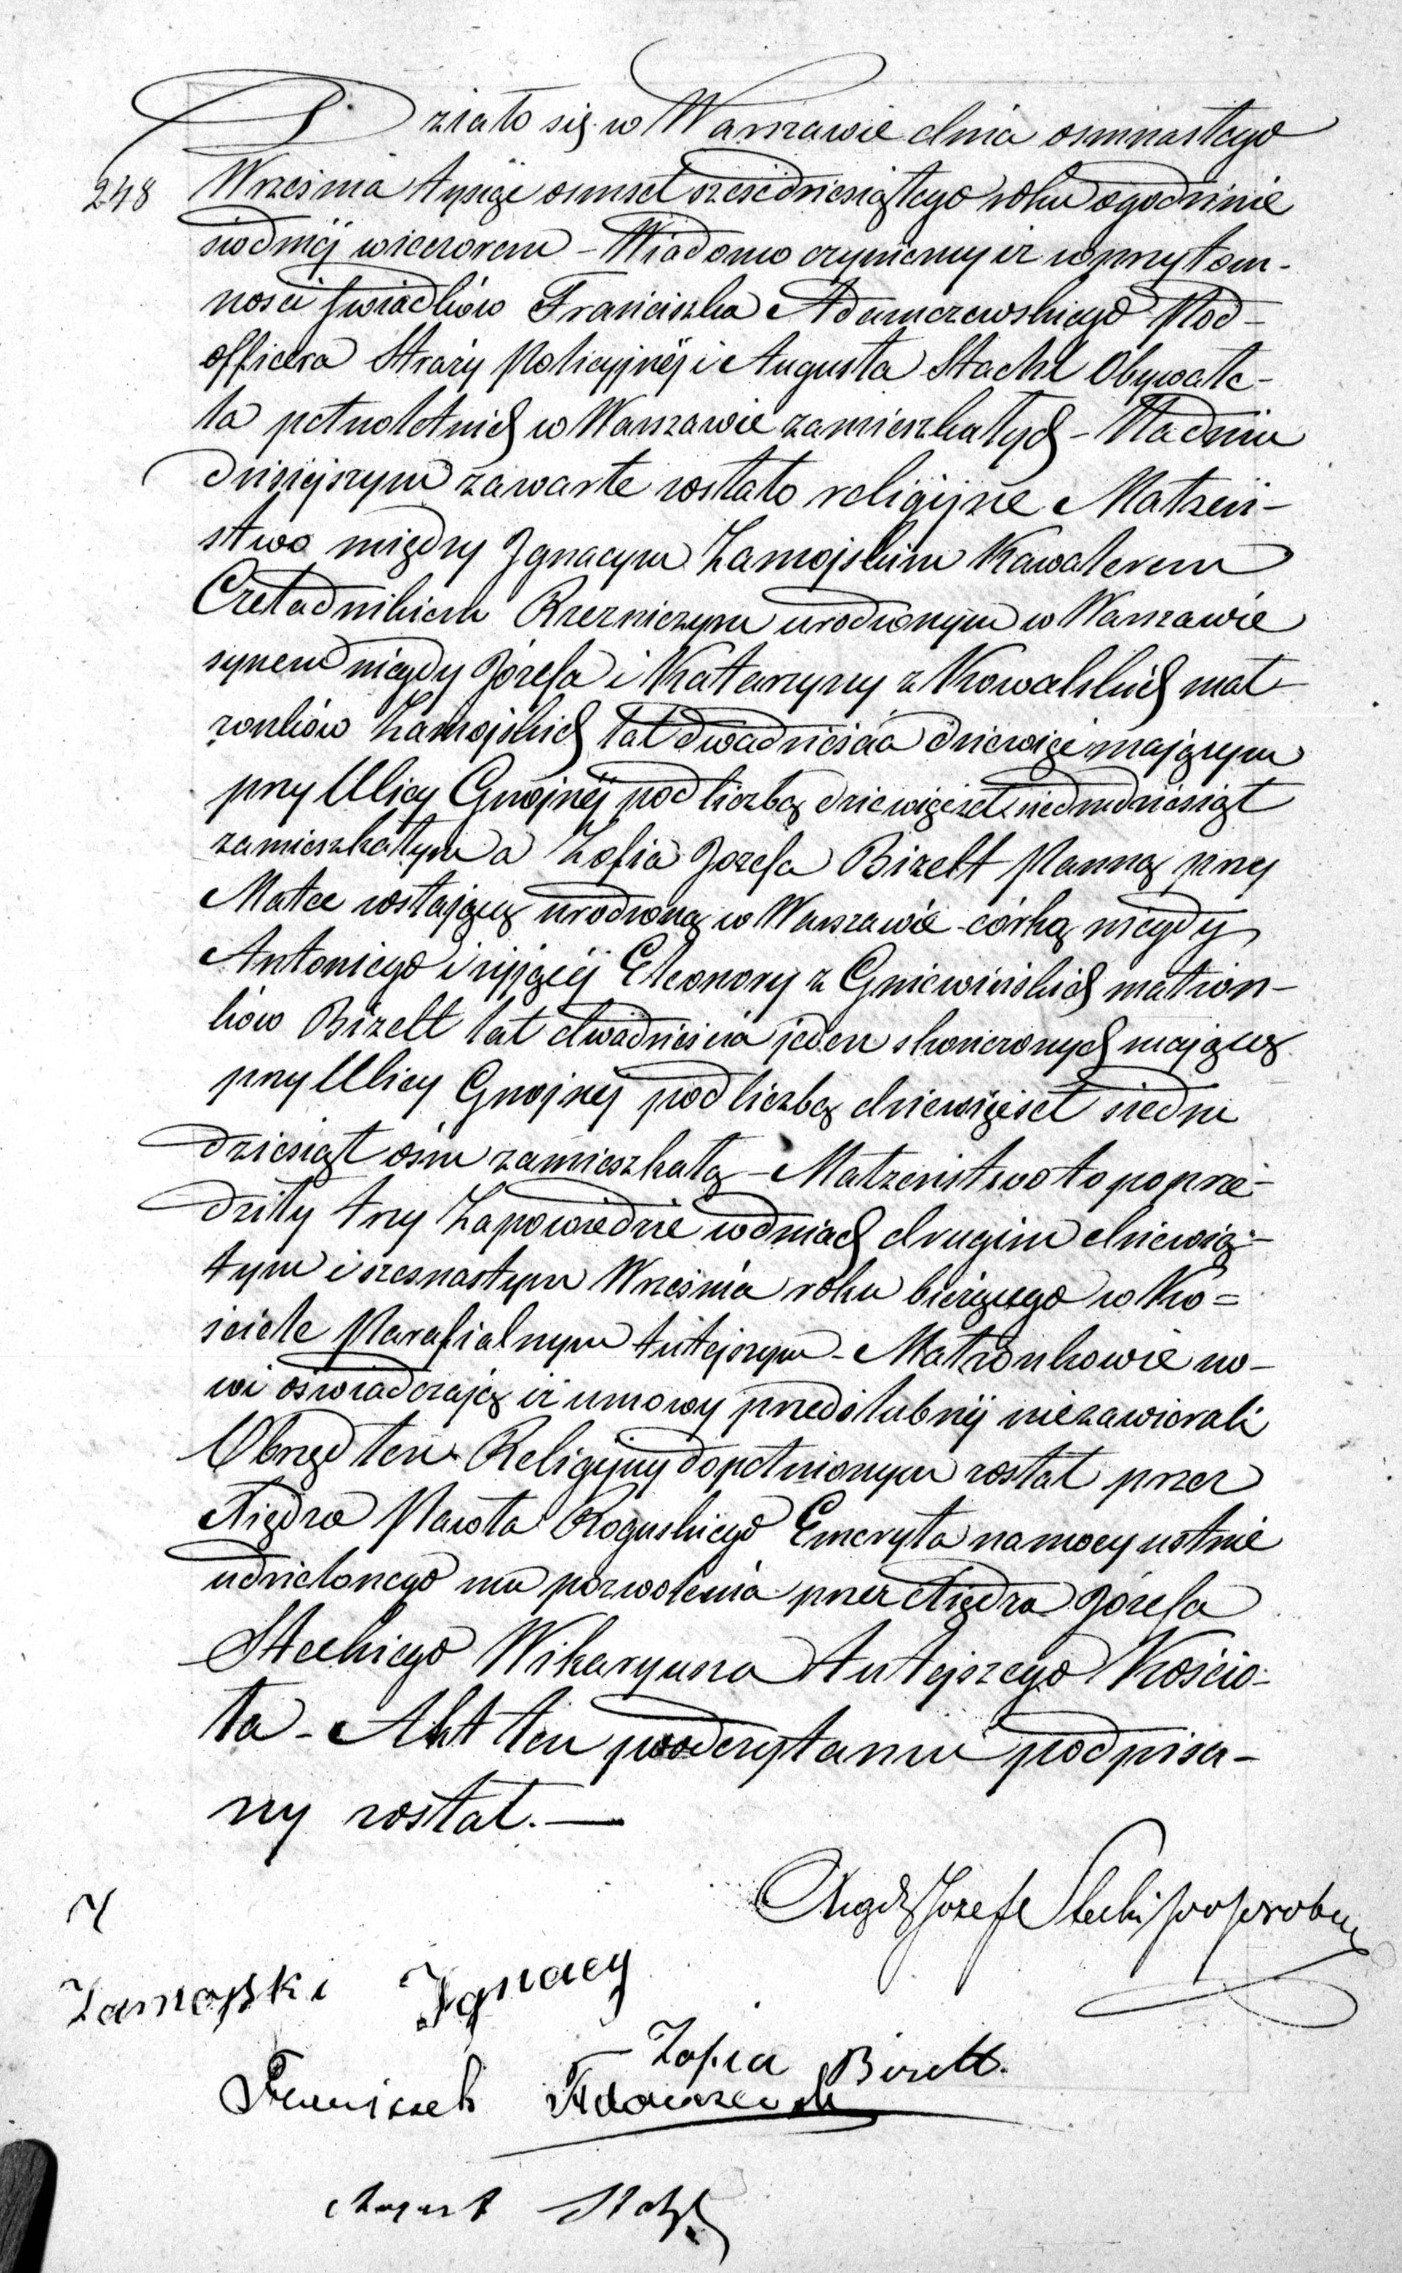 Działo się w Warszawie dnia osmnastego
248 Września tysiąc osmset sześćdziesiątego roku o godzinie
siódmej wieczorem – Wiadomo czyniemy iż w przytom-
ności świadków Franciszka Adamczewskiego Pod-
officera Straży Policyjnéj i Augusta Stachl Obywate-
la pełnoletnich w Warszawie zamieszkałych – Na dniu
dzisiéjszym zawarte zostało religijne Małżeń-
stwo między Ignacym Zamojskim Kawalerem
Czeladnikiem Rzezniczym urodzonym w Warszawie
synem niegdy Józefa i Katarzyny z Kowalskich mał-
żonków Zamojskich lat dwadzieścia dziewięć mającym
przy Ulicy Gnojnéj pod liczbą dziewięćset siedmdziesiąt
zamieszkałym a Zofia Jozefa Bizelt Panną przy
Matce zostającą urodzoną w Warszawie córką niegdy
Antoniego i żyjącéj Eleonory z Gniewińskich małżon-
ków Bizelt lat dwadzieścia jeden skończonych mającą
przy Ulicy Gnojnej pod liczbą dziewięćset siedm
dziesiąt ośm zamieszkałą – Małżeństwo to poprze-
dziły trzy Zapowiedzie w dniach drugim dziewią-
tym i szesnastym Września roku bieżącego w Ko=
ściele Parafialnym tutejszym – Małżonkowie no-
wi oświadczają iż umowy przedślubnéj niezawierali
Obrzęd ten Religijny dopełnionym został przez
Xiędza Pawła Roguskiego Emeryta na mocy ustnie
udzielonego mu pozwolenia przez Xiędza Józefa
Steckiego Wikaryusza tutejszego Kościo-
ła – Akt ten po odczytaniu podpisa-
ny został. —
Xiądz Jozef Stecki
Zamojski Ignacy
Zofia Bizelt.
Franiszek Adamczewski
August